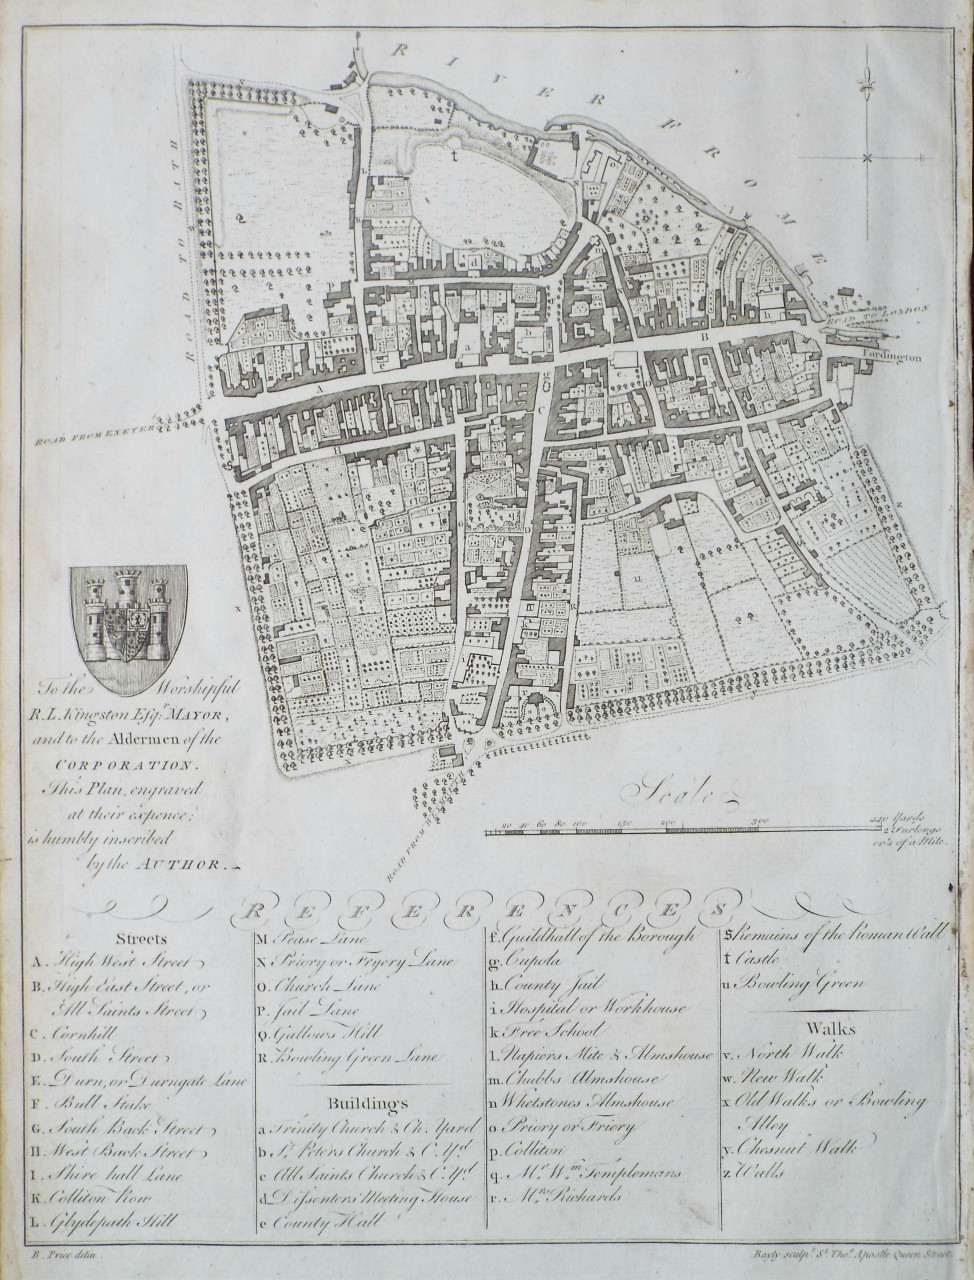 RIVER FROME
ROAD TO BATH
ROAD TO LONDON
Fordington
ROAD FROM EXETER
To the Worshipful
R. L. Kingston Esqr. MAYOR,
and to the Aldermen of the
CORPORATION.
This Plan, engraved
at their expence;
is humbly inscribed
by the AUTHOR.
Scale
20 40 60 80 100 150 200 300 440 Yards
2 Furlongs
or ¼ of a Mile.
ROAD FROM
REFERENCES
Streets
A. High West Street
B. High East Street, or
All Saints Street
C. Cornhill
D. South Street
E. Durn, or Durngate Lane
F. Bull Stake
G. South Back Street
H. West Back Street
I. Shire hall Lane
K. Colliton Row
L. Glydepath Hill
M Pease Lane
N Priory or Fryery Lane
O. Church Lane
P. Jail Lane
Q. Gallows Hill
R. Bowling Green Lane
Buildings
a Trinity Church & Ch. Yard
b St. Peters Church & C. Yd.
c All Saints Church & C. Yd.
d Dissenters Meeting House
e County Hall
f. Guildhall of the Borough
g. Cupola
h. County Jail
i. Hospital or Workhouse
k. Free School
l. Napiers Mite & Almshouse
m. Chubbs Almshouse
n Whetstones Almshouse
o. Priory or Friery
p. Colliton
q. Mr. Wm. Templemans
r. Mrs. Richards
S Remains of the Roman Wall
t Castle
u Bowling Green
Walks
v. North Walk
w. New Walk
x Old Walks or Bowling
Alley
y. Chesnut Walk
z. Walls
B. Price delin
Bayly sculpt. St. Thos. Apostle Queen Street.